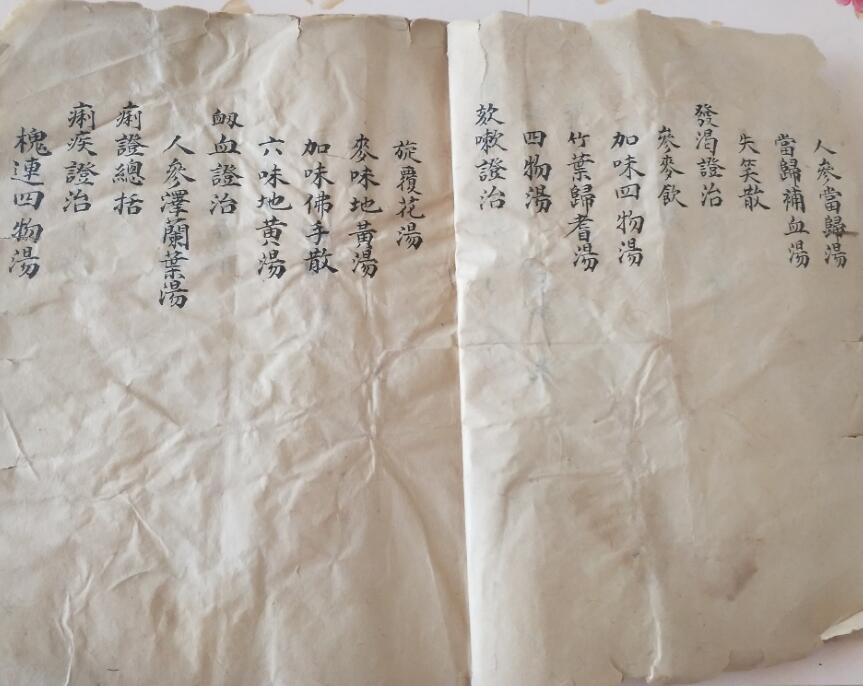 人參當歸湯
當歸補血湯
失笑散
發渴證治
參麥飲
加味四物湯
竹葉歸耆湯
四物湯
欬嗽證治
旋覆花湯
麥味地黃湯
加味佛手散
六味地黃湯
衂血證治
人參澤蘭葉湯
痢證總括
痢疾證治
槐連四物湯